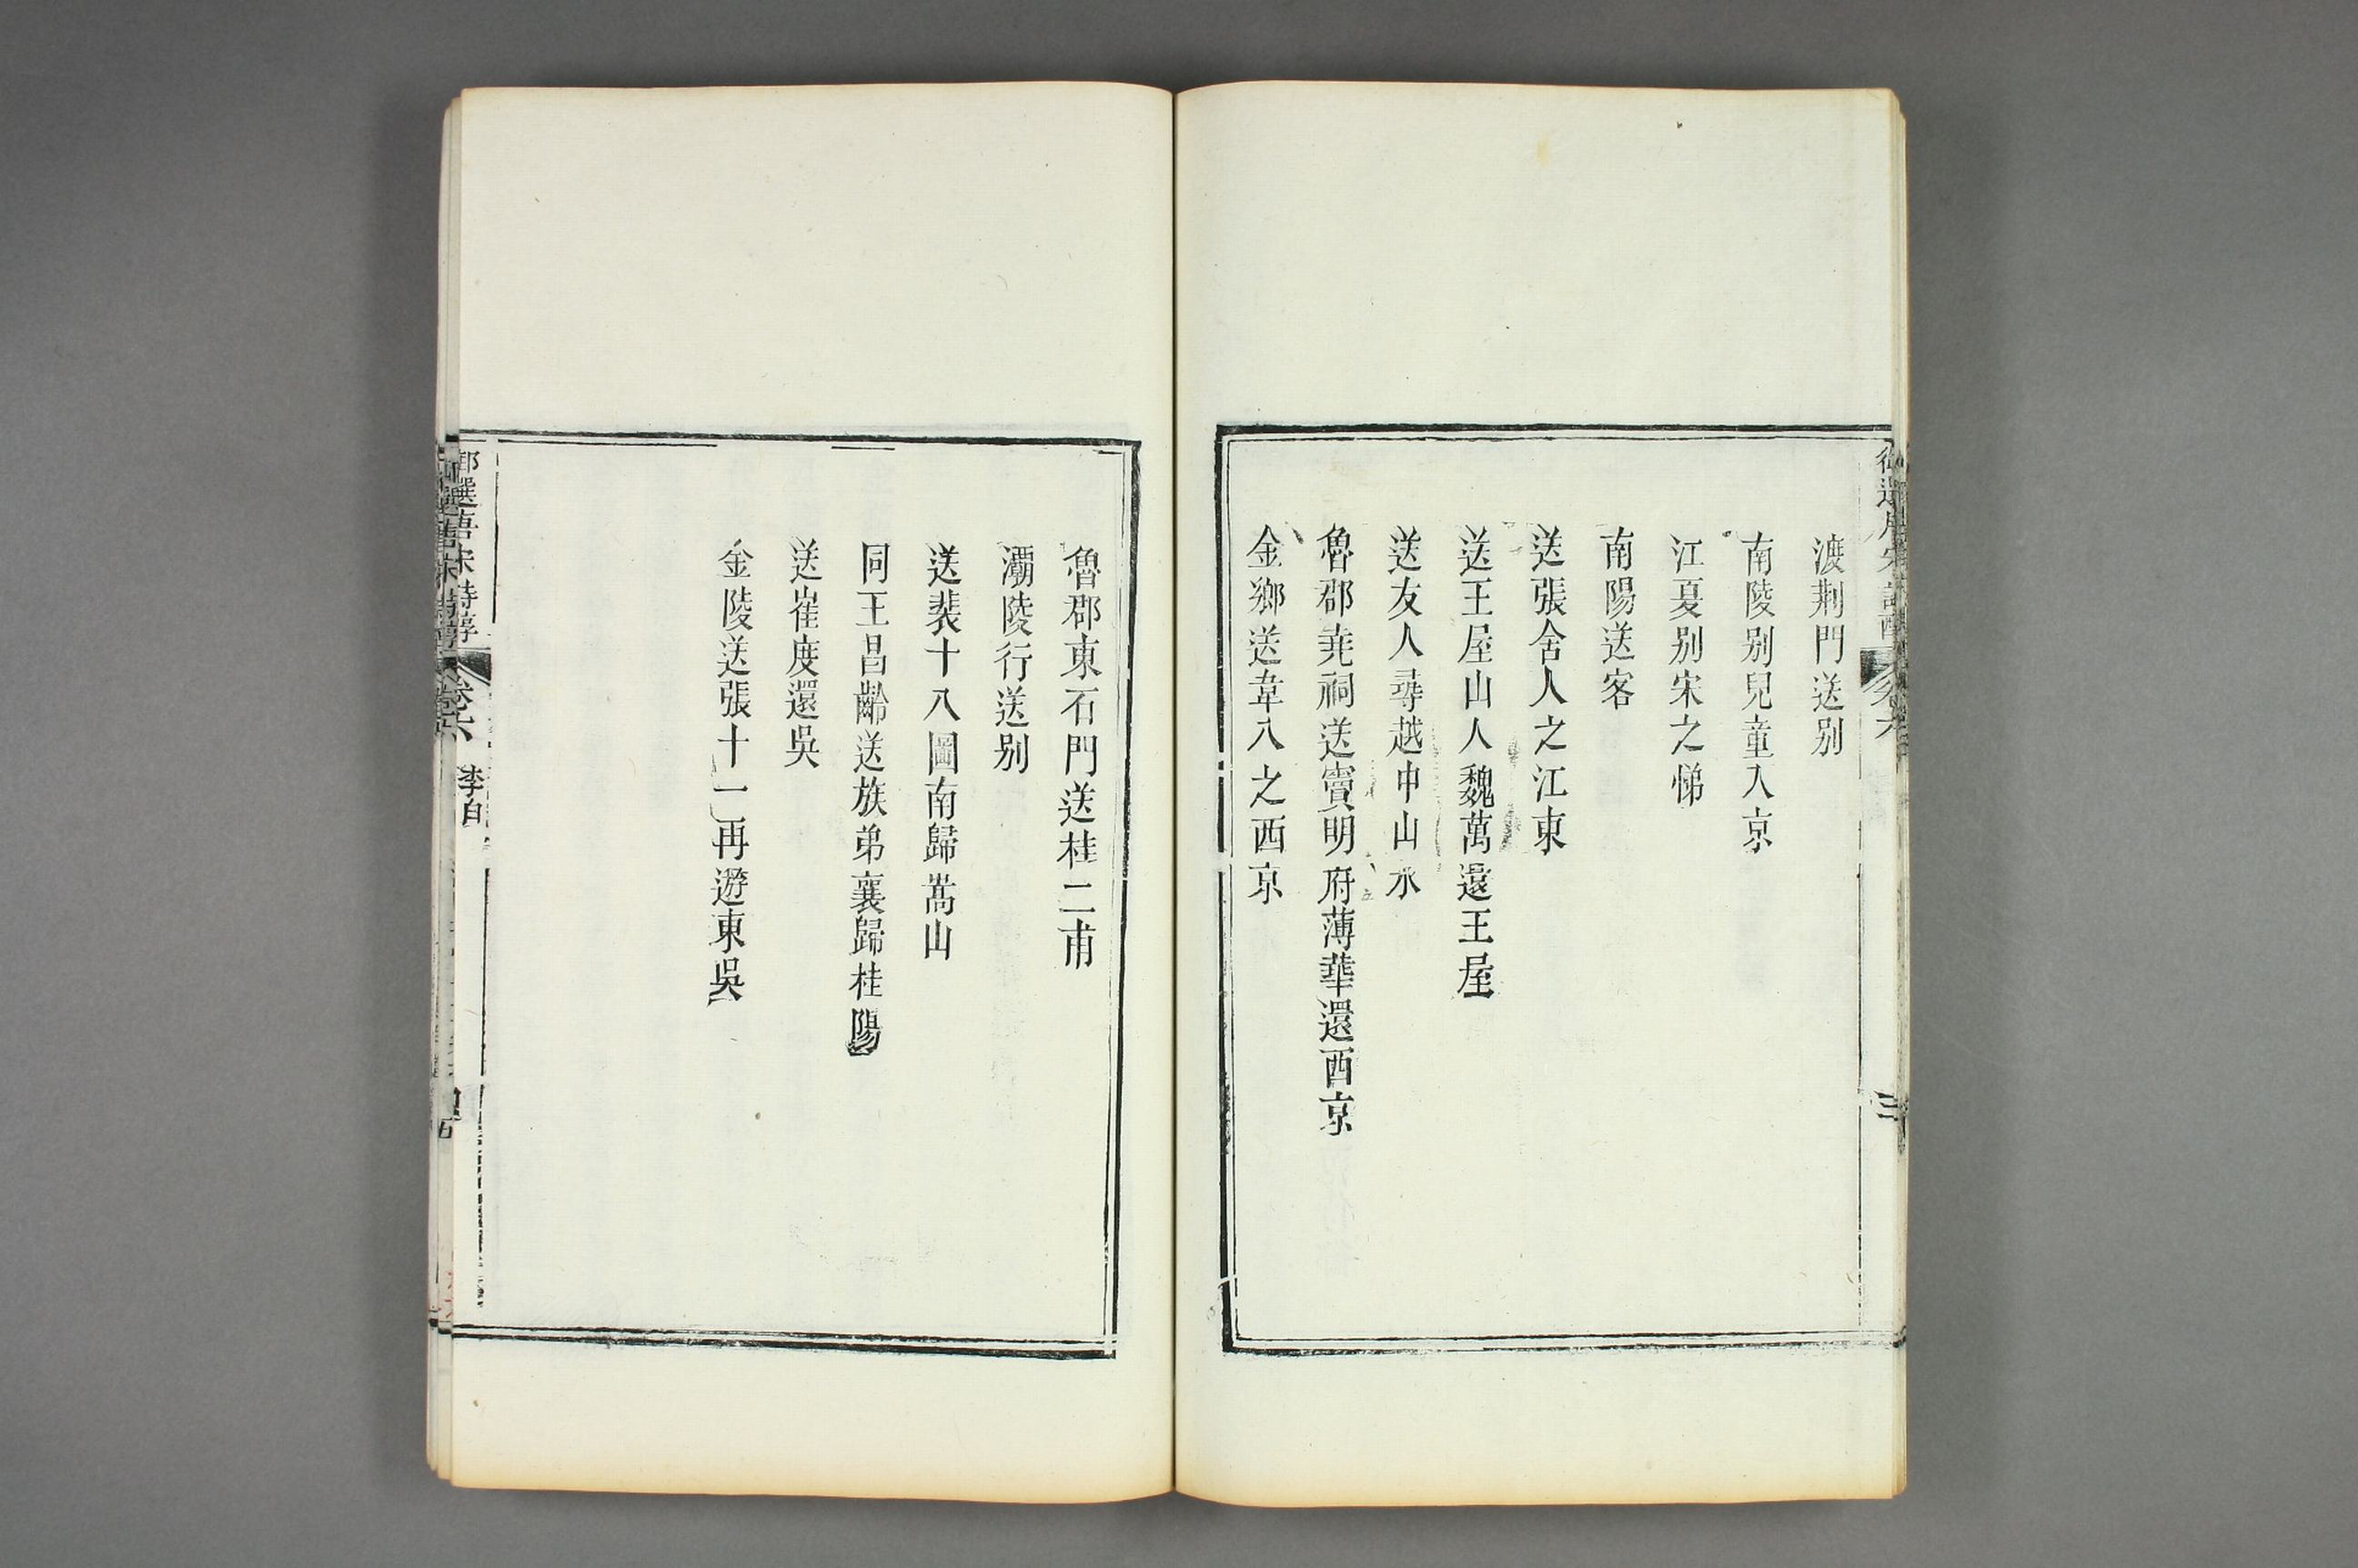 渡荆門送别
南陵别兒童入京
江夏别宋之悌
南陽送客
送張舍人之江東
送王屋山人魏萬還王屋
送友人尋越中山水
魯郡堯祠送竇明府薄華還西京
金鄉送韋八之西京
魯郡東石門送杜二甫
灞陵行送别
送裴十八圖南歸嵩山
同王昌齡送族弟襄歸桂陽
送崔度還吳
金陵送張十一再遊東吳
御選唐宋詩醇
卷六
李白